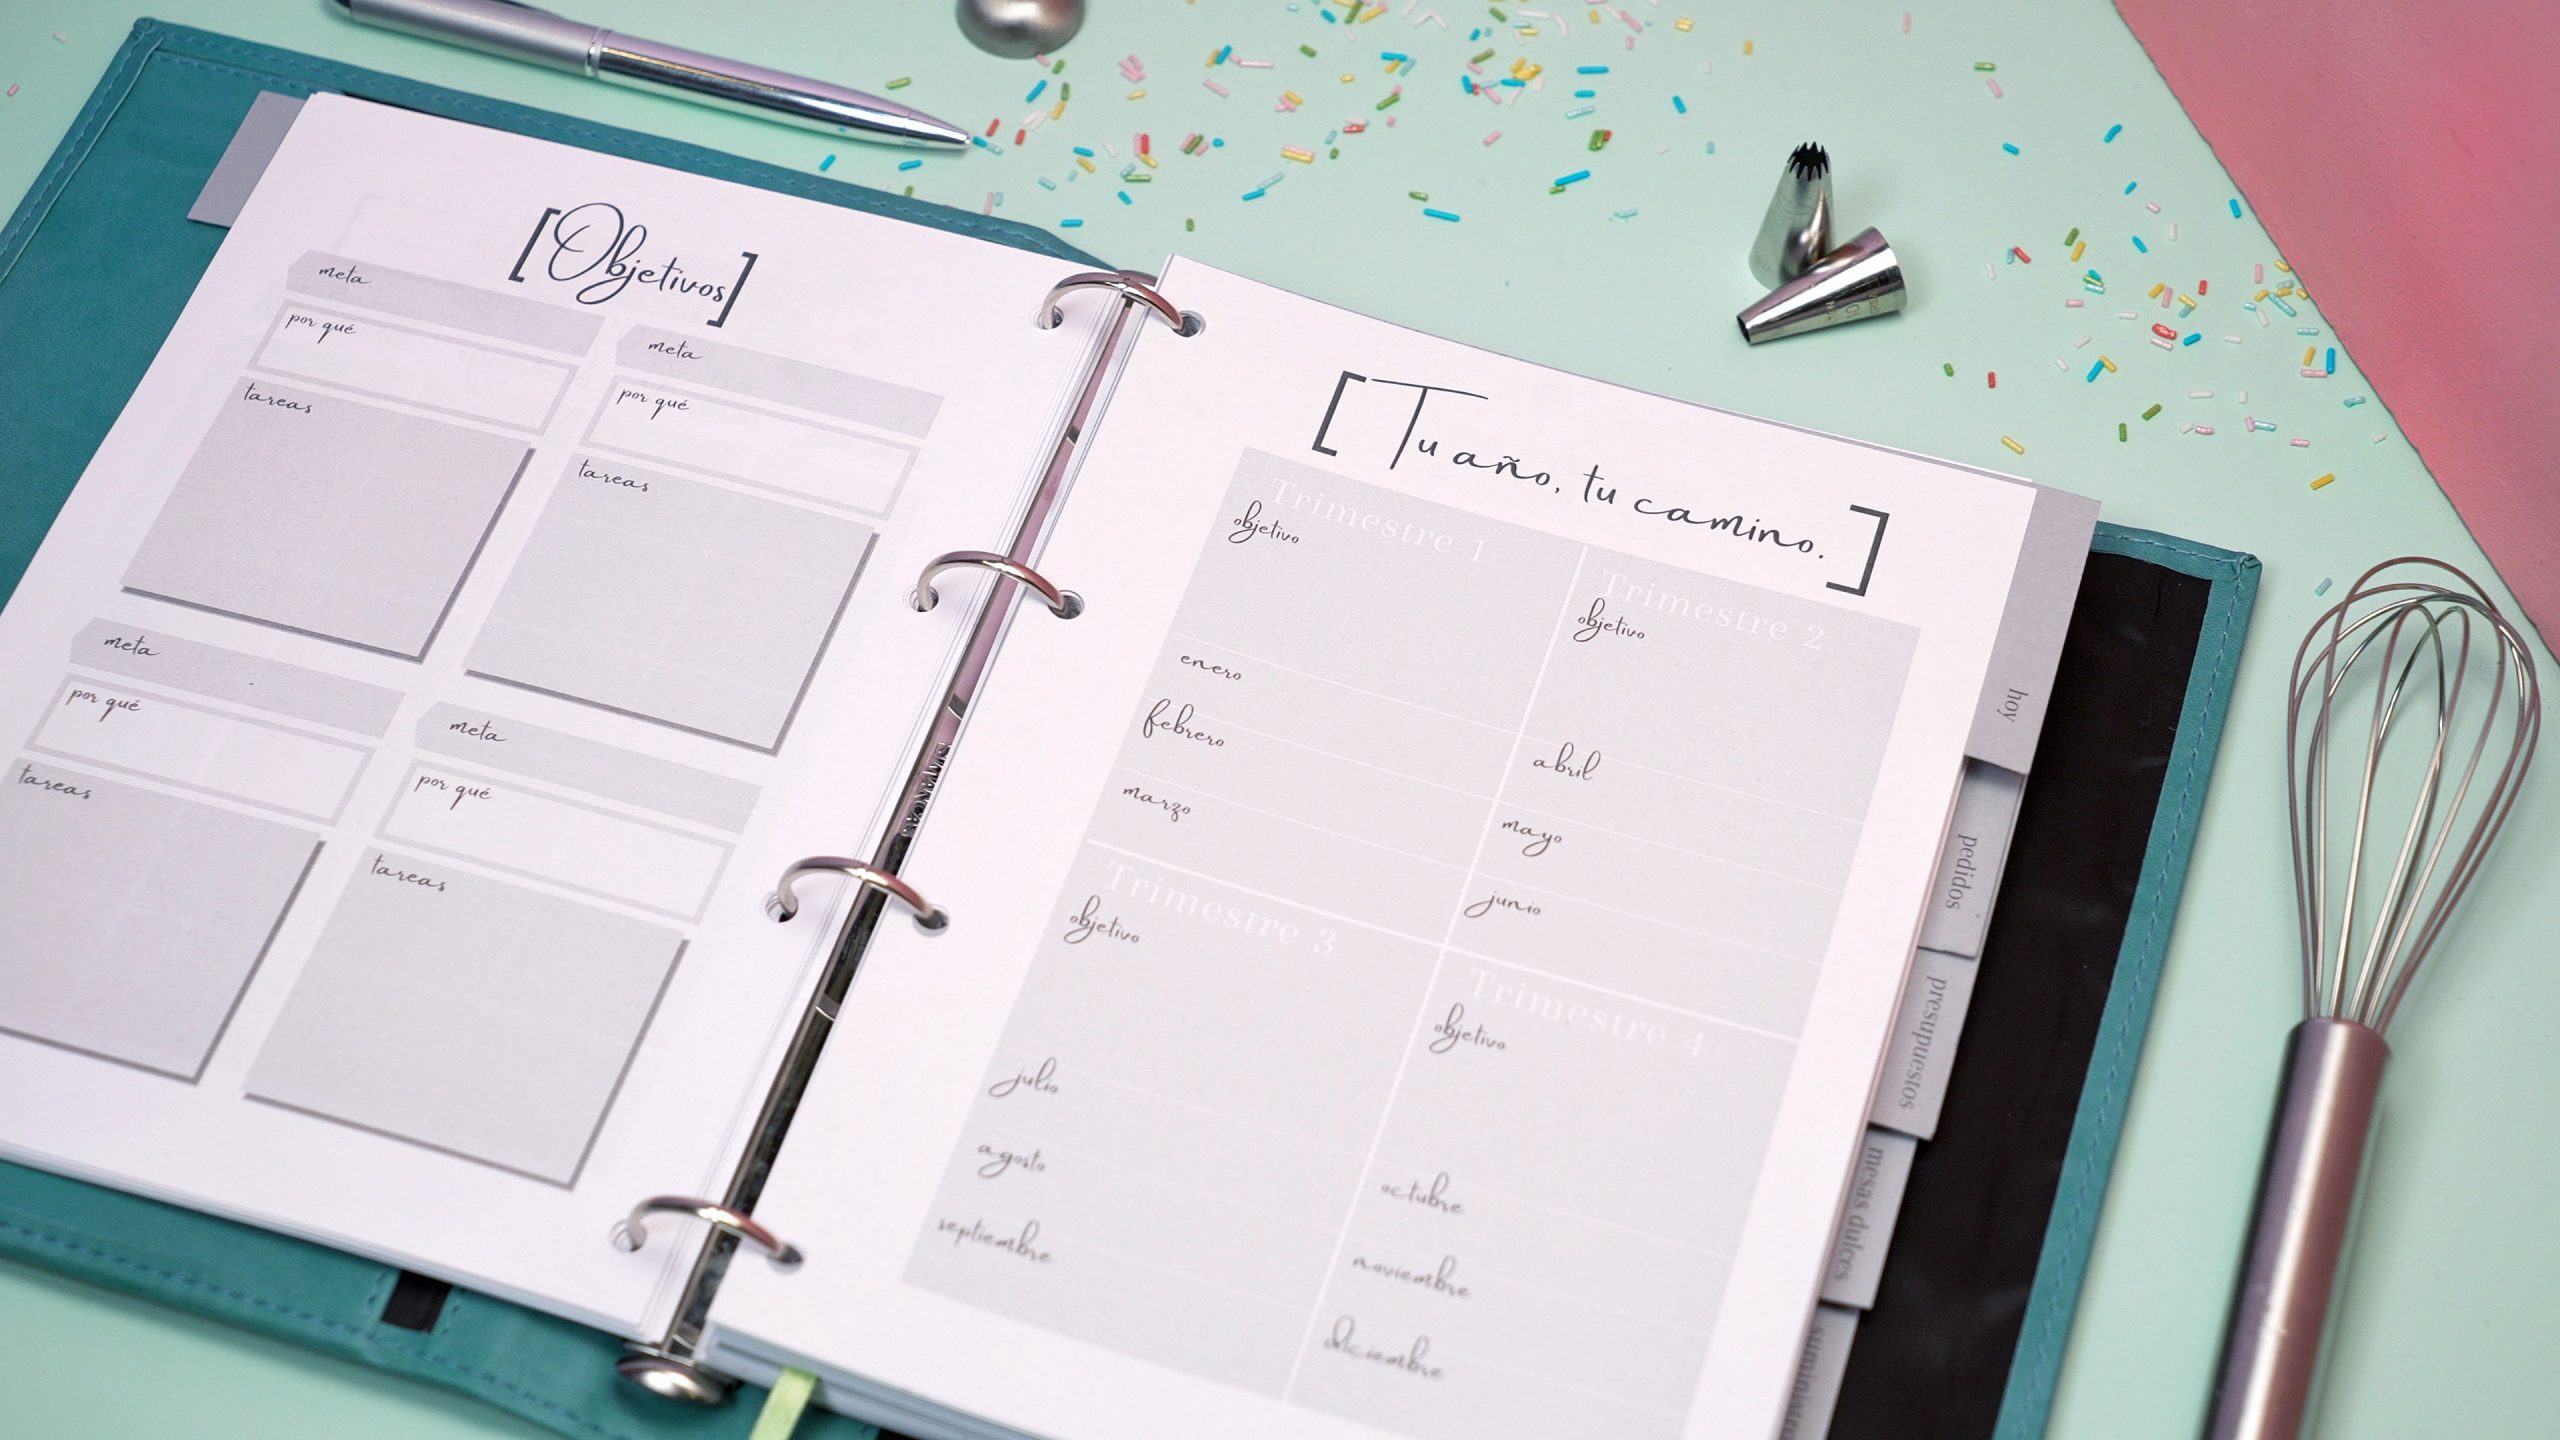 [Objetivos]
meta
por qué
tareas
meta
por qué
tareas
meta
por qué
tareas
meta
por qué
tareas
[Tu año, tu camino.]
Trimestre 1
objetivo
enero
febrero
marzo
Trimestre 2
objetivo
abril
mayo
junio
Trimestre 3
objetivo
julio
agosto
septiembre
Trimestre 4
objetivo
octubre
noviembre
diciembre
hoy
pedidos
presupuestos
mesas dulces